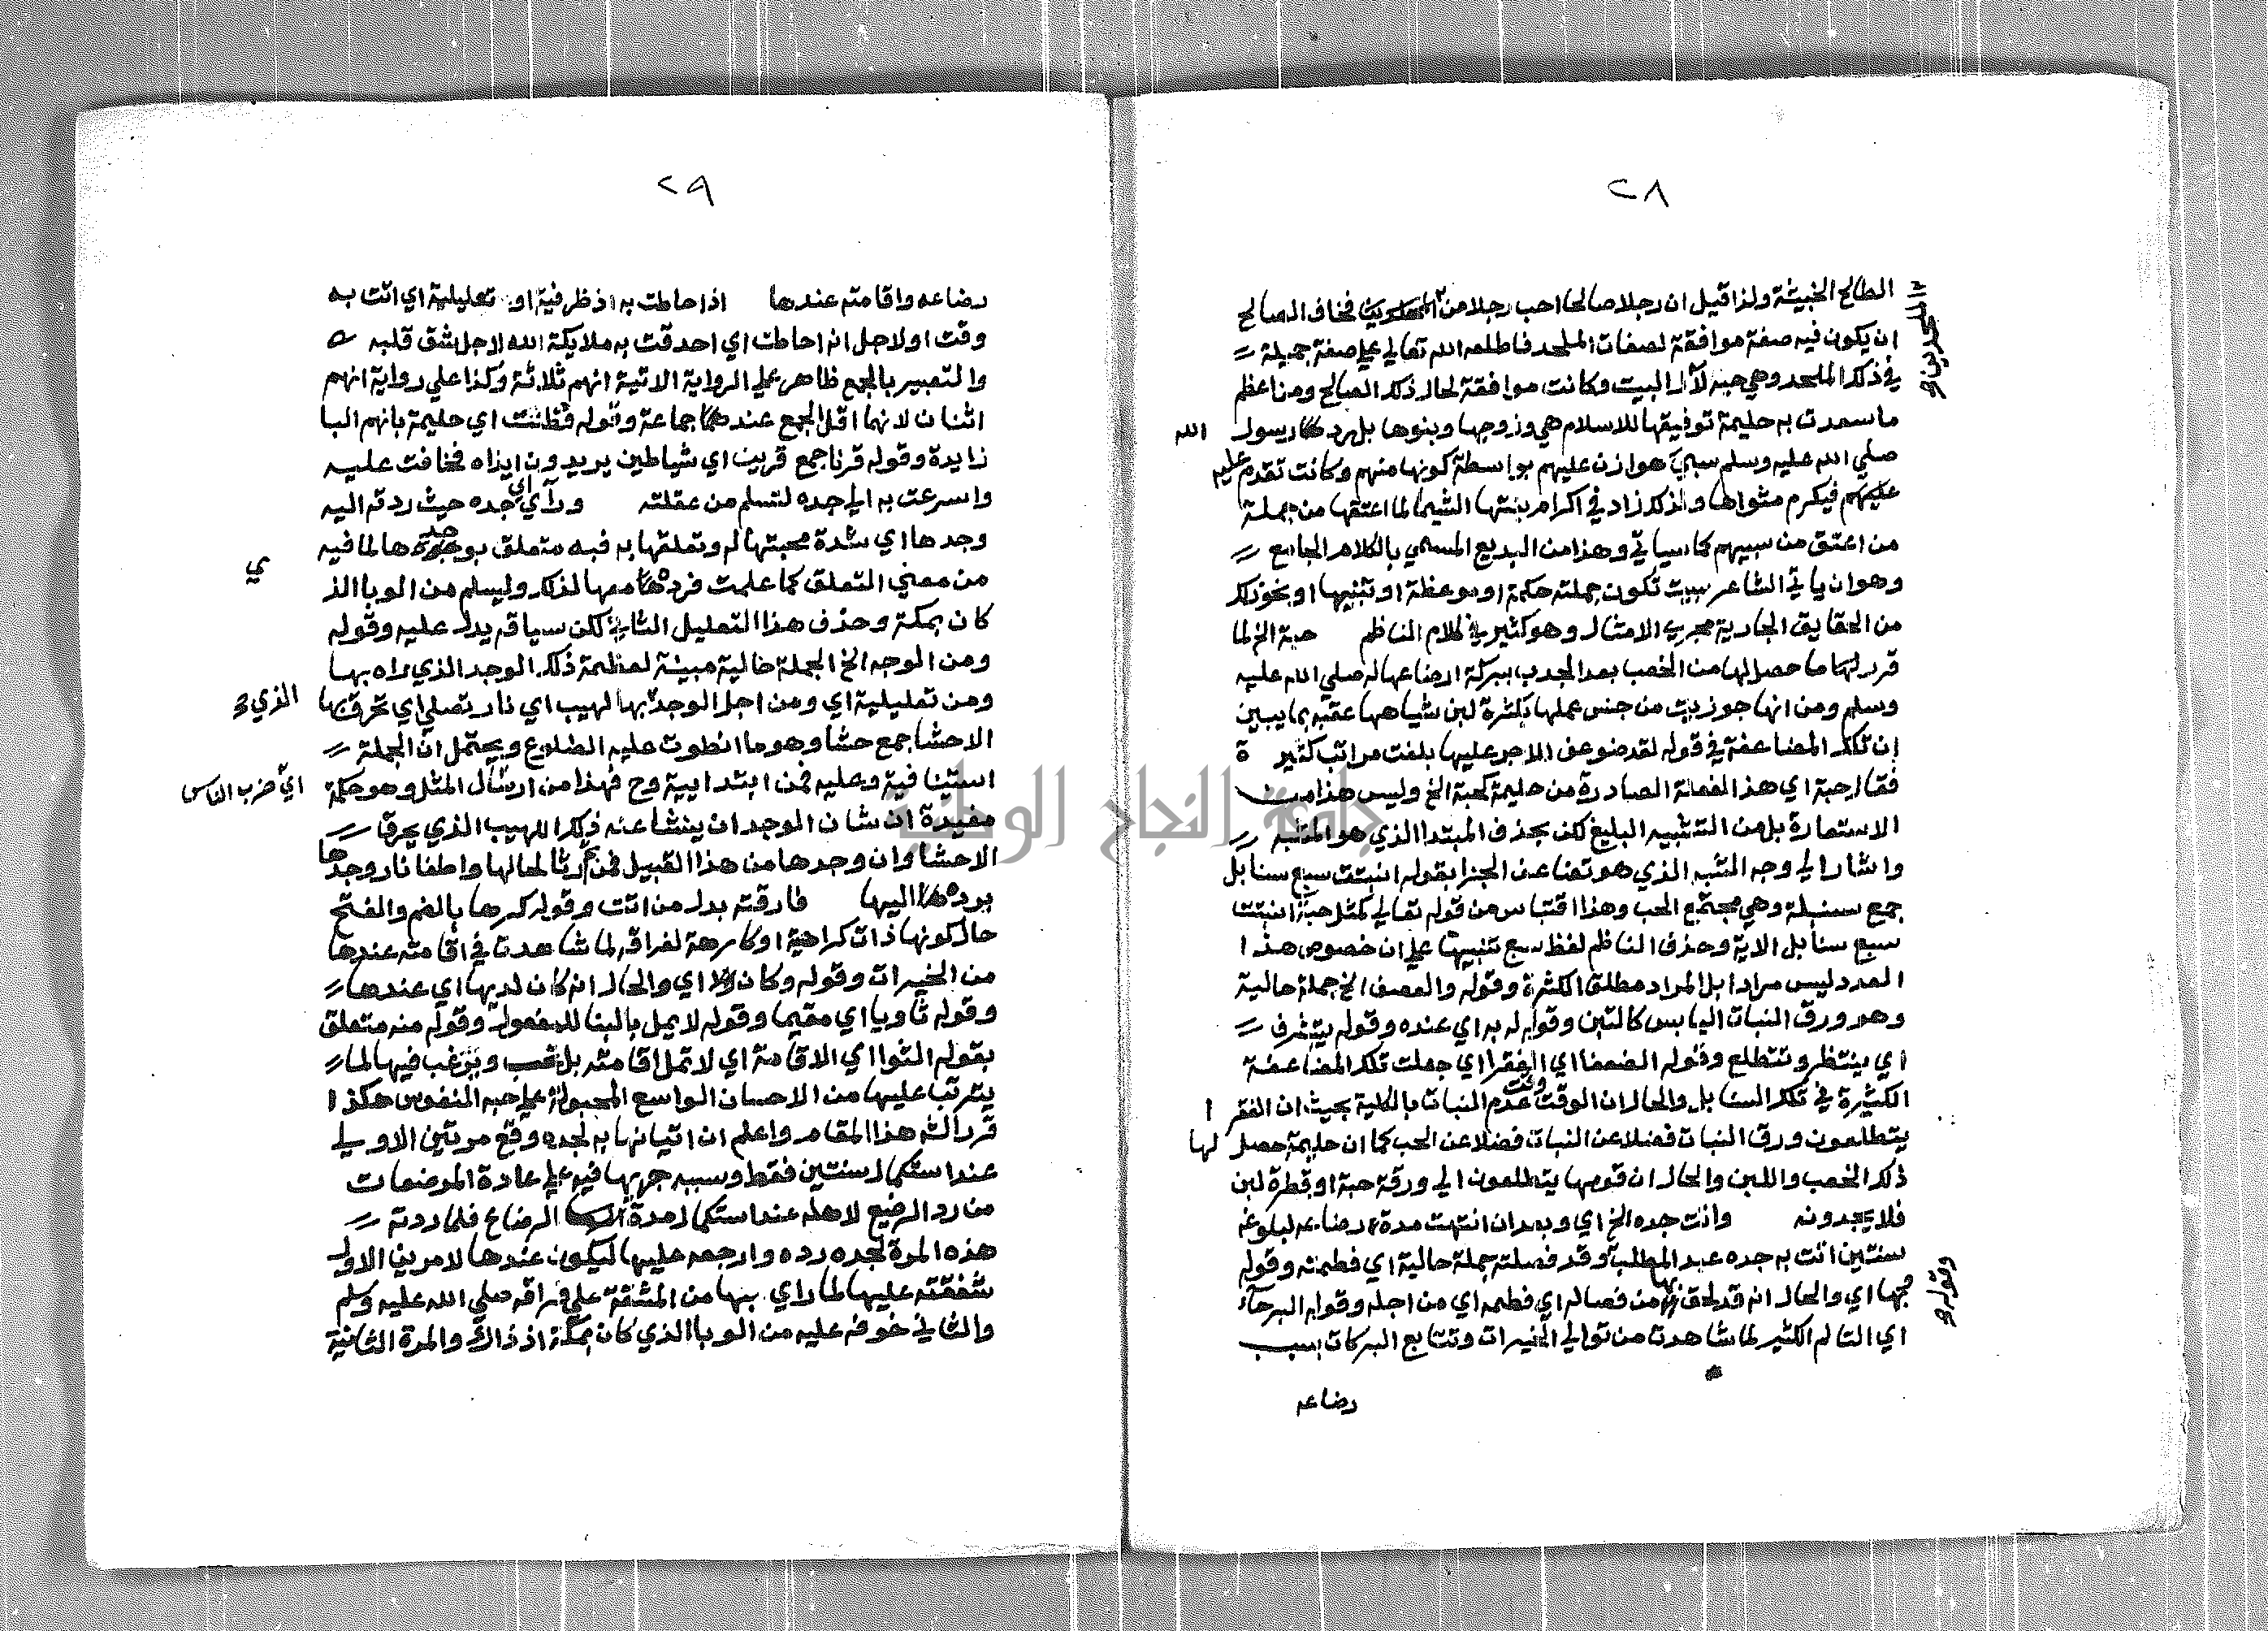 ٢٨
الطالح الخبيثة ولذا قيل ان رجلا صالحا احب رجلا من الملحدين فخاف الصالح
ان يكون فيه صفة موافقة لصفات الملحد فاطلعه الله تعالي علي صفة جميلة
في ذلك الملحد وهي حبه لآل البيت وكانت موافقة لحال ذلك الصالح ومن اعظم
ما سعدت به حليمة توفيقها للاسلام هي وزوجها وبنوها بل رد رسول الله
صلي الله عليه وسلم سبي هوازن عليهم بواسطة كونها منهم وكانت تقدم عليه
عليهم فيكرم مثواها ولذلك زاد في اكرام بنتها الشيما لما اعتقها من جملة
من اعتق من سبيهم كما سياتي وهذا من البديع المسمي بالكلام الجامع
وهو ان ياتي الشاعر ببيت تكون جملته حكمة او موعظة او تنبيها او نحو ذلك
من الحقايق الجارية مجري الامثال وهو كثير في كلام الناظم حبة الخ لما
قرر لها ما حصل لها من الخصب بعد الجدب ببركة ارضاعها له صلي الله عليه
وسلم ومن انها جوزيت من جنس عملها بكثرة لبن شياهها عقبه بما يبين
ان تلك المضاعفة في قوله لقد ضوعف الاجر عليها بلغت مراتب كثيرة
فقال حبة اي هذا الفعلة الصادرة من حليمة كحبة الخ وليس هذا من
الاستعارة بل من التشبيه البليغ لكن بحذف المبتدا الذي هو المشبه
واشار الي وجه الشبه الذي هو تضاعف الجزا بقوله انبتت سبع سنابل
جمع سنبلة وهي مجتمع الحب وهذا اقتباس من قوله تعالي كمثل حبة انبتت
سبع سنابل الاية وحذف الناظم لفظ سبع تنبيها علي ان خصوص هذا
العدد ليس مرادا بل المراد مطلق الكثرة وقوله والعصف الخ جملة حالية
وهو ورق النبات اليابس كالتبن وقوله لديه اي عنده وقوله يتشرف
اي ينتظر وتتطلع وقوله الضعفا اي الفقرا اي جعلت تلك المضاعفة
الكثيرة في تلك السنابل والحال ان الوقت وقت عدم النبات بالكلية بحيث ان الفقرا
يتطلعون ورق النبات فضلا عن النبات فضلا عن الحب كما ان حليمة حصل لها
ذلك الخصب واللبن والحال ان قومها يتطلعون الي ورقة حبة او قطرة لبن
فلا يجدونه وانت جده الخ اي وبعد ان انتهت مدة رضاعه لبلوغه
سنتين اتت به جده عبد المطلب وقد فصلته جملة حالية اي فطمته وقوله
وقوله بها اي والحال انه قد لحق بها من فصاله اي فطمه اي من اجله وقوله البرحآء
اي التالم الكثير لما شاهدت من توالي الخيرات وتتابع البركات بسبب
رضاعه
٢٩
رضاعه واقامته عندها اذ احاطت به اذ ظرفية او تعليلية اي اتت به
وقت او لاجل ان احاطت اي احدقت به ملايكة الله لاجل شق قلبه
والتعبير بالجمع ظاهر علي الرواية الاتية انهم ثلاثة وكذا علي رواية انهم
اثنان لانهما اقل الجمع عند جماعة وقوله فظننت اي حليمة بانهم البا
زايدة وقوله قرنا جمع قرين اي شياطين يريدون ايذاه فخافت عليه
واسرعت به الي جده لتسلم من عقلته ورآي اي جده حيث ردته اليه
وجدها اي شدة محبتها له وتعلقها به فبه متعلق بوجدها لما فيه
من معني التعلق كما علمت فرده معها لذلك وليسلم من الوبا الذي
كان بمكة وحذف هذا التعليل الثاني لكن سياقه يدل عليه وقوله
ومن الوجه الخ الجملة حالية مبينة لعظمة ذلك الوجد الذي راه بها
ومن تعليلية اي ومن اجل الوجد الذي بها لهيب اي نار تصلي اي تحرق بها
الاحشا جمع حشا وهو ما انطوت عليه الضلوع ويحتمل ان الجملة
استئنافية وعليه فمن ابتدايية وح فهذا من ارسال المثل اي ضرب الناس وهو حكمة
مفيدة ان شان الوجد ان ينشا عنه ذلك اللهيب الذي يحرق
الاحشا وان وجدها من هذا القبيل فمن ثم رثا لحالها واطفا نار وجدها
برده اليها فارقته بدل من اتت وقوله كرها بالضم والفتح
حال كونها ذات كراهية او كارهة لفراقه لما شاهدت في اقامته عندها
من الخيرات وقوله وكان اي والحال انه كان لديها اي عندها
وقوله ثاويا اي مقيما وقوله لا يمل بالبنا للمفعول وقوله منه متعلق
بقوله الثوا اي الاقامة اي لا تمل اقامته بل تحب ويرغب فيها لما
يترتب عليها من الاحسان الواسع المجبولة علي حبه النفوس هكذا
قرر الشه هذا المقام واعلم ان اتيانها به لجده وقع مرتين الاولي
عند استكمال سنتين فقط وسببه جريها فيه علي عادة المرضعات
من رد الرضيع لاهله عند استكمال مدة الرضاع فلما ردته
هذه المرة لجده رده وارجعه عليها ليكون عندها لامرين الاول
شفقته عليها لما راي بها من المشقة علي فراقه صلي الله عليه وسلم
والثاني خوفه عليه من الوبا الذي كان بمكة اذ ذاك والمرة الثانية
جامعة النجاح الوطنية